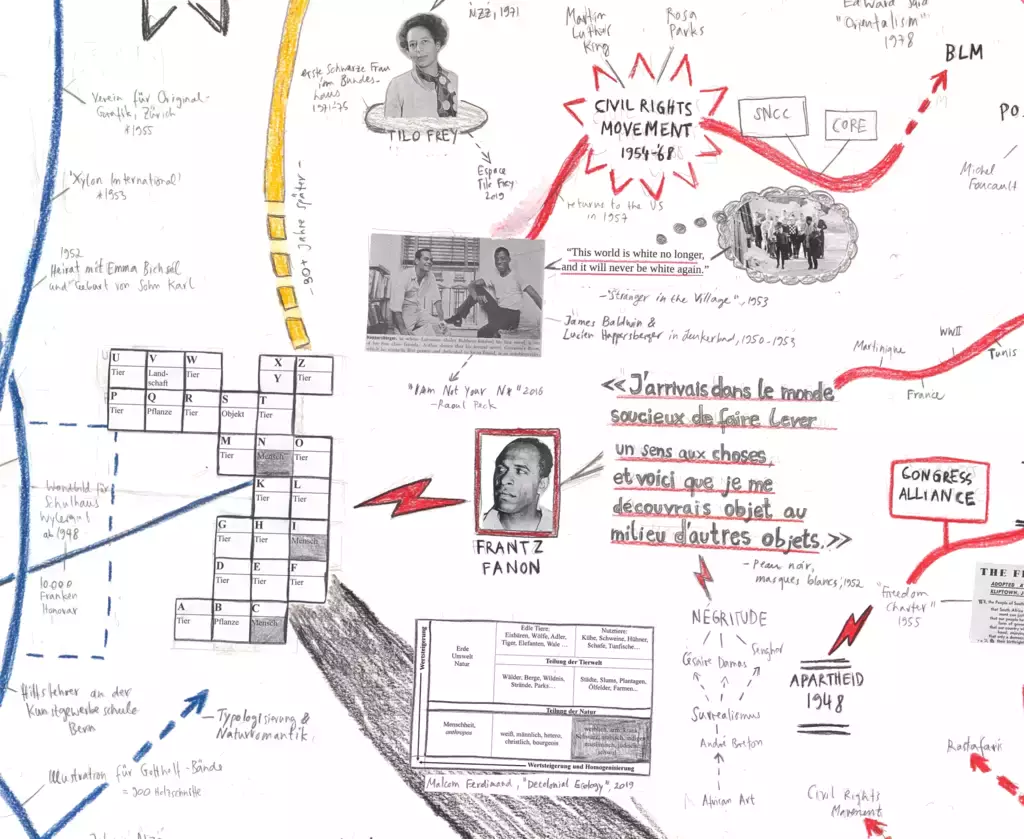 NZZ, 1971
Martin
Luther
King
Rosa
Parks
Edward Said
"Orientalism"
1978
BLM
erste Schwarze Frau
im Bundes-
haus
1971-75
TILO FREY
Espace
Tilo Frey
2019
CIVIL RIGHTS
MOVEMENT
1954-68
SNCC
CORE
Verein für Original-
Grafik, Zürich
*1955
"Xylon International"
*1953
1952
Heirat mit Emma Bichsel
und Geburt von Sohn Karl
- 90+ Jahre später -
returns to the US
in 1957
Michel
Foucault
"This world is white no longer,
and it will never be white again."
- "Stranger in the Village", 1953
James Baldwin &
Lucien Happersberger in Leukerbad, 1950-1953
"I Am Not Your N*" 2016
- Raoul Peck
Martinique
WWII
Tunis
France
U
Tier
V
Land-
schaft
W
Tier
X
Y
Z
Tier
P
Tier
Q
Pflanze
R
Tier
S
Objekt
T
Tier
M
Tier
N
Mensch
O
Tier
K
Tier
L
Tier
G
Tier
H
Tier
I
Mensch
D
Tier
E
Tier
F
Tier
A
Tier
B
Pflanze
C
Mensch
Wandbild für
Schulhaus
Wylergut
ab 1948
10.000
Franken
Honorar
FRANTZ
FANON
<< J'arrivais dans le monde
soucieux de faire lever
un sens aux choses,
et voici que je me
découvrais objet au
milieu d'autres objets. >>
- Peau noir,
masques blancs, 1952
CONGRESS
ALLIANCE
"Freedom
Charter"
1955
ADOPTED A
KLIPTOWN, J
NÉGRITUDE
Césaire
Damas
Senghor
Surrealismus
André Breton
African Art
APARTHEID
1948
Rastafaris
Civil Rights
Movement
Hilfslehrer an der
Kunstgewerbeschule
Bern
- Typologisierung &
Naturromantik
Illustration für Gotthelf-Bände
= 200 Holzschnitte
Wertsteigerung
Erde
Umwelt
Natur
Edle Tiere:
Eisbären, Wölfe, Adler,
Tiger, Elefanten, Wale ...
Nutztiere:
Kühe, Schweine, Hühner,
Schafe, Tunfische...
Teilung der Tierwelt
Wälder, Berge, Wildnis,
Strände, Parks...
Städte, Slums, Plantagen,
Ölfelder, Farmen...
Teilung der Natur
Menschheit,
anthropos
weiß, männlich, hetero,
christlich, bourgeois
Wertsteigerung und Homogenisierung
Malcom Ferdinand, "Decolonial Ecology", 2019